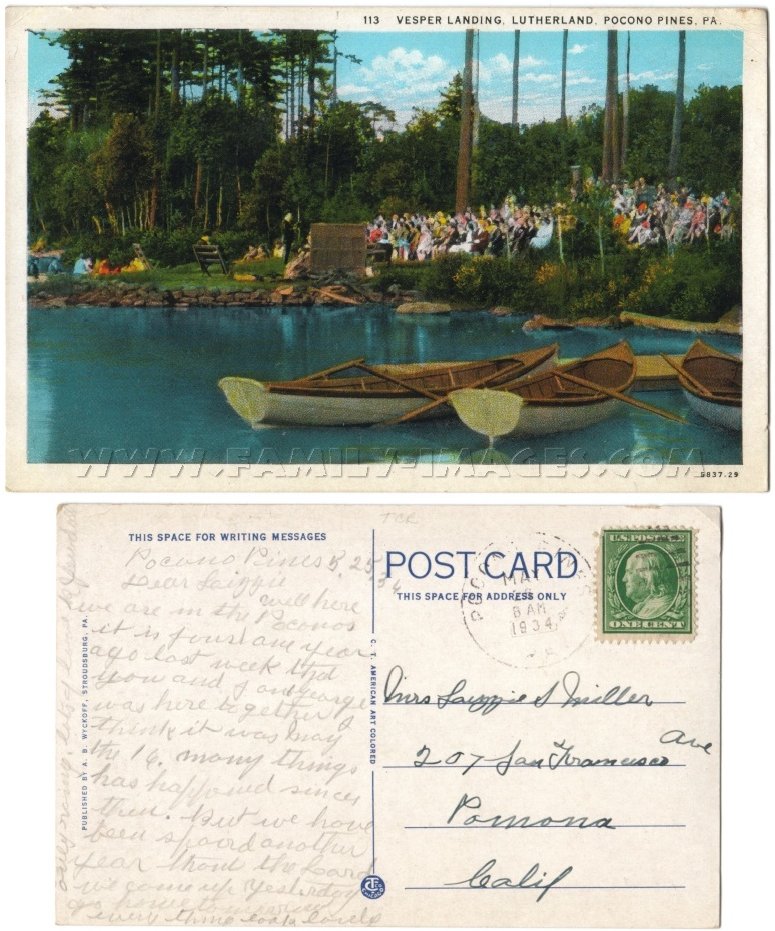 113 VESPER LANDING, LUTHERLAND, POCONO PINES, PA.
WWW.FAMILY-IMAGES.COM
5837-29
THIS SPACE FOR WRITING MESSAGES
Pocono Pines 5, 25, 34
Dear Lizzie
well here
we are in the Poconos
it is just one year
ago last week that
you and I and George
was here together I
think it was May
the 16. many things
has happened sinces
then. But we have
been spaird another
year thank the Lord
we came up yesterday
go home tomorrow
every thing look lovele
PUBLISHED BY A. B. WYCKOFF, STROUDSBURG, PA.
C. T. AMERICAN ART COLORED
TCR
POST CARD
THIS SPACE FOR ADDRESS ONLY
POCONO PINES
MAY
8 AM
1934
PA
U.S. POSTAGE
ONE CENT
Mrs Lizzie S Miller
207 San Francisco Ave
Pomona
Calif